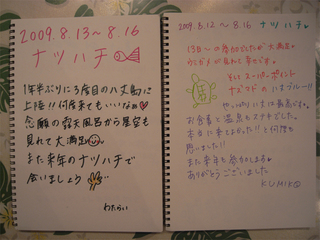 2009.8.13~8.16
ナツハチ
1年半ぶりに3度目の八丈島に
上陸!!何度来てもいいなぁ
念願の露天風呂から星空も
見れて大満足
また来年のナツハチで
会いましょう
わたらい
2009.8.12~8.16 ナツハチ
13日~の参加でしたが大満足。
うにがメが見れて幸せです。
そして スーパーポイント
ナズマドのハチブルー!!
やっぱり八丈は最高です。
お食事と温泉もステキでした。
本当に来てよかった!!と何度も
思いました!!
また来年も参加します
ありがとうございました
KUMIKO